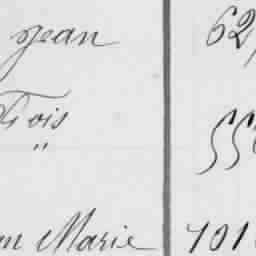 Jean 62,
Fois 550
"
an Marie 101